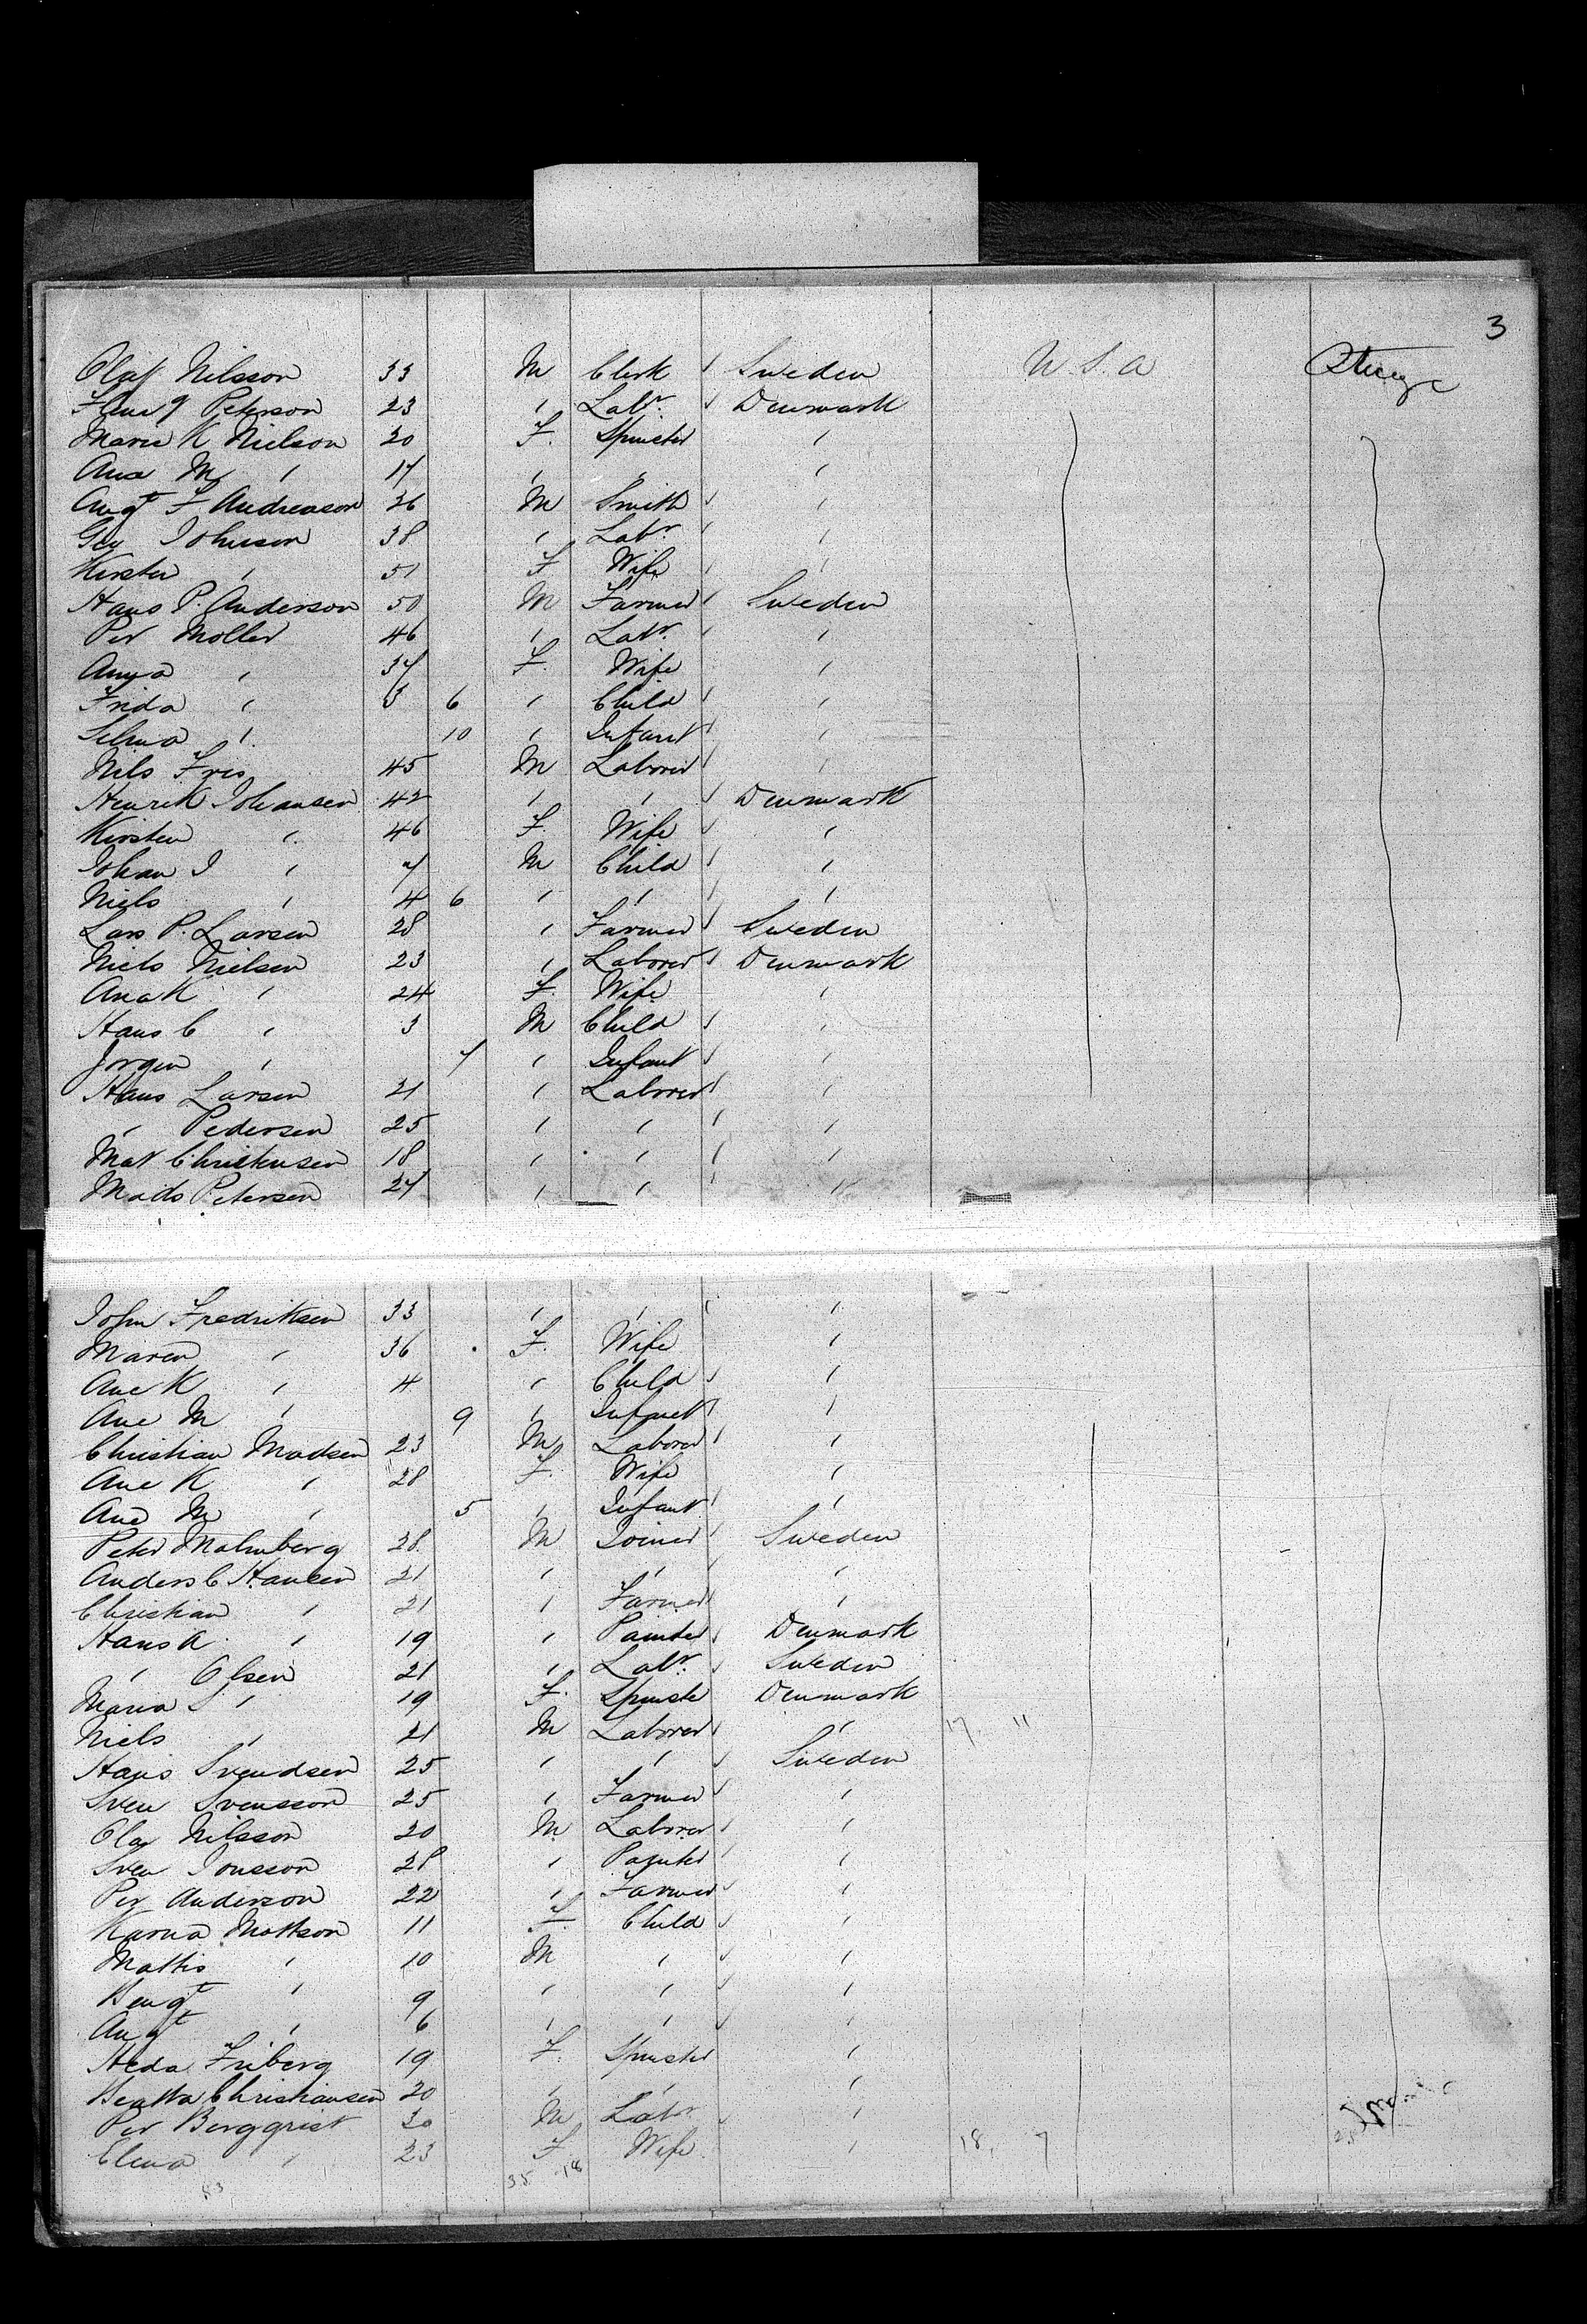 3
Olaf Nilsson 33 M Clerk Sweden U.S.A Steerge
Peterson 23 " Labr. Denmark
Marie K Nielson 20 F. Spinster "
Ana M " 17 " " "
Augt F Andreason 26 M Smith "
Johnson 38 " Labr. "
Kirsten " 51 F Wife "
Hans P. Anderson 50 M Farmer Sweden
Per Moller 46 " Labr. "
Anna " 37 F. Wife "
Frida " 3 6 " Child "
Selma " 10 " Infant "
Nils Fris 45 M Laborer "
Henrik Johansen 42 " " Denmark
Kirsten " 46 F. Wife "
Johan J " 7 M Child "
Niels " 4 6 " " "
Lars P. Larsen 28 " Farmer Sweden
Niels Nielsen 23 " Laborer Denmark
Ana K " 24 F. Wife "
Hans C " 3 M Child "
Jorgen " 7 " Infant "
Hans Larsen 21 " Laborer "
" Pedersen 25 " " "
Mat Christensen 18 " " "
Mads Petersen 27 " " "
John Fredriksen 33 " " "
Maren " 36 F. Wife "
Ane K " 4 " Child "
Ane M " 9 " Infant "
Christian Madsen 23 M Laborer "
Ane K " 28 F. Wife "
Ane M " 5 " Infant "
Peter Malmberg 28 M Joiner Sweden
Anders C Hansen 21 " " "
Christian " 21 " Farmer "
Hans A " 19 " Painter Denmark
" Olsen 21 " Labr. Sweden
Maria S " 19 F. Spinster Denmark
Niels " 21 M Laborer " 17. 11
Hans Svendsen 25 " " Sweden
Sven Svensson 25 " Farmer "
Ola Nilsson 20 M Laborer "
Sven Jonsson 28 " Painter "
Per Anderson 22 " Farmer "
Karna Mattson 11 F. Child "
Mattis " 10 M " "
Bengt " 9 " " "
Augt " 6 " " "
Heda Friberg 19 F. Spinster "
Christiansen 20 " " "
Per Bergqrist 30 M Labr "
Elena " 23 F Wife " 18, 7
53 35 18